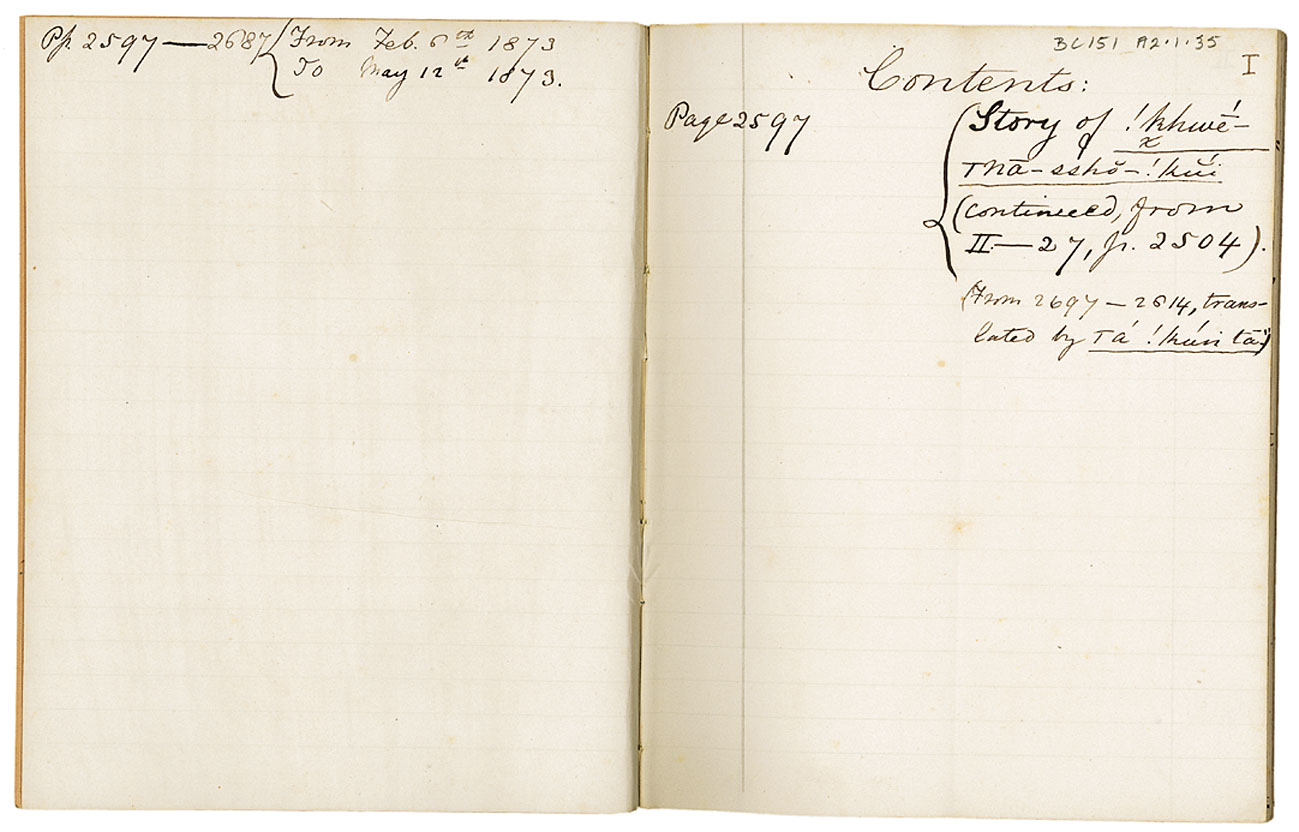 Pp. 2597—2687 From Feb. 6th 1873
To May 12th 1873.
BC151 A2.1.35
I
Contents:
Page 2597
Story of !khwĕ́-
x
ına-sshŏ-!kúi
(continued, from
II—27, p. 2504).
(From 2697—2614, trans-
lated by ıá !kúïi tā)